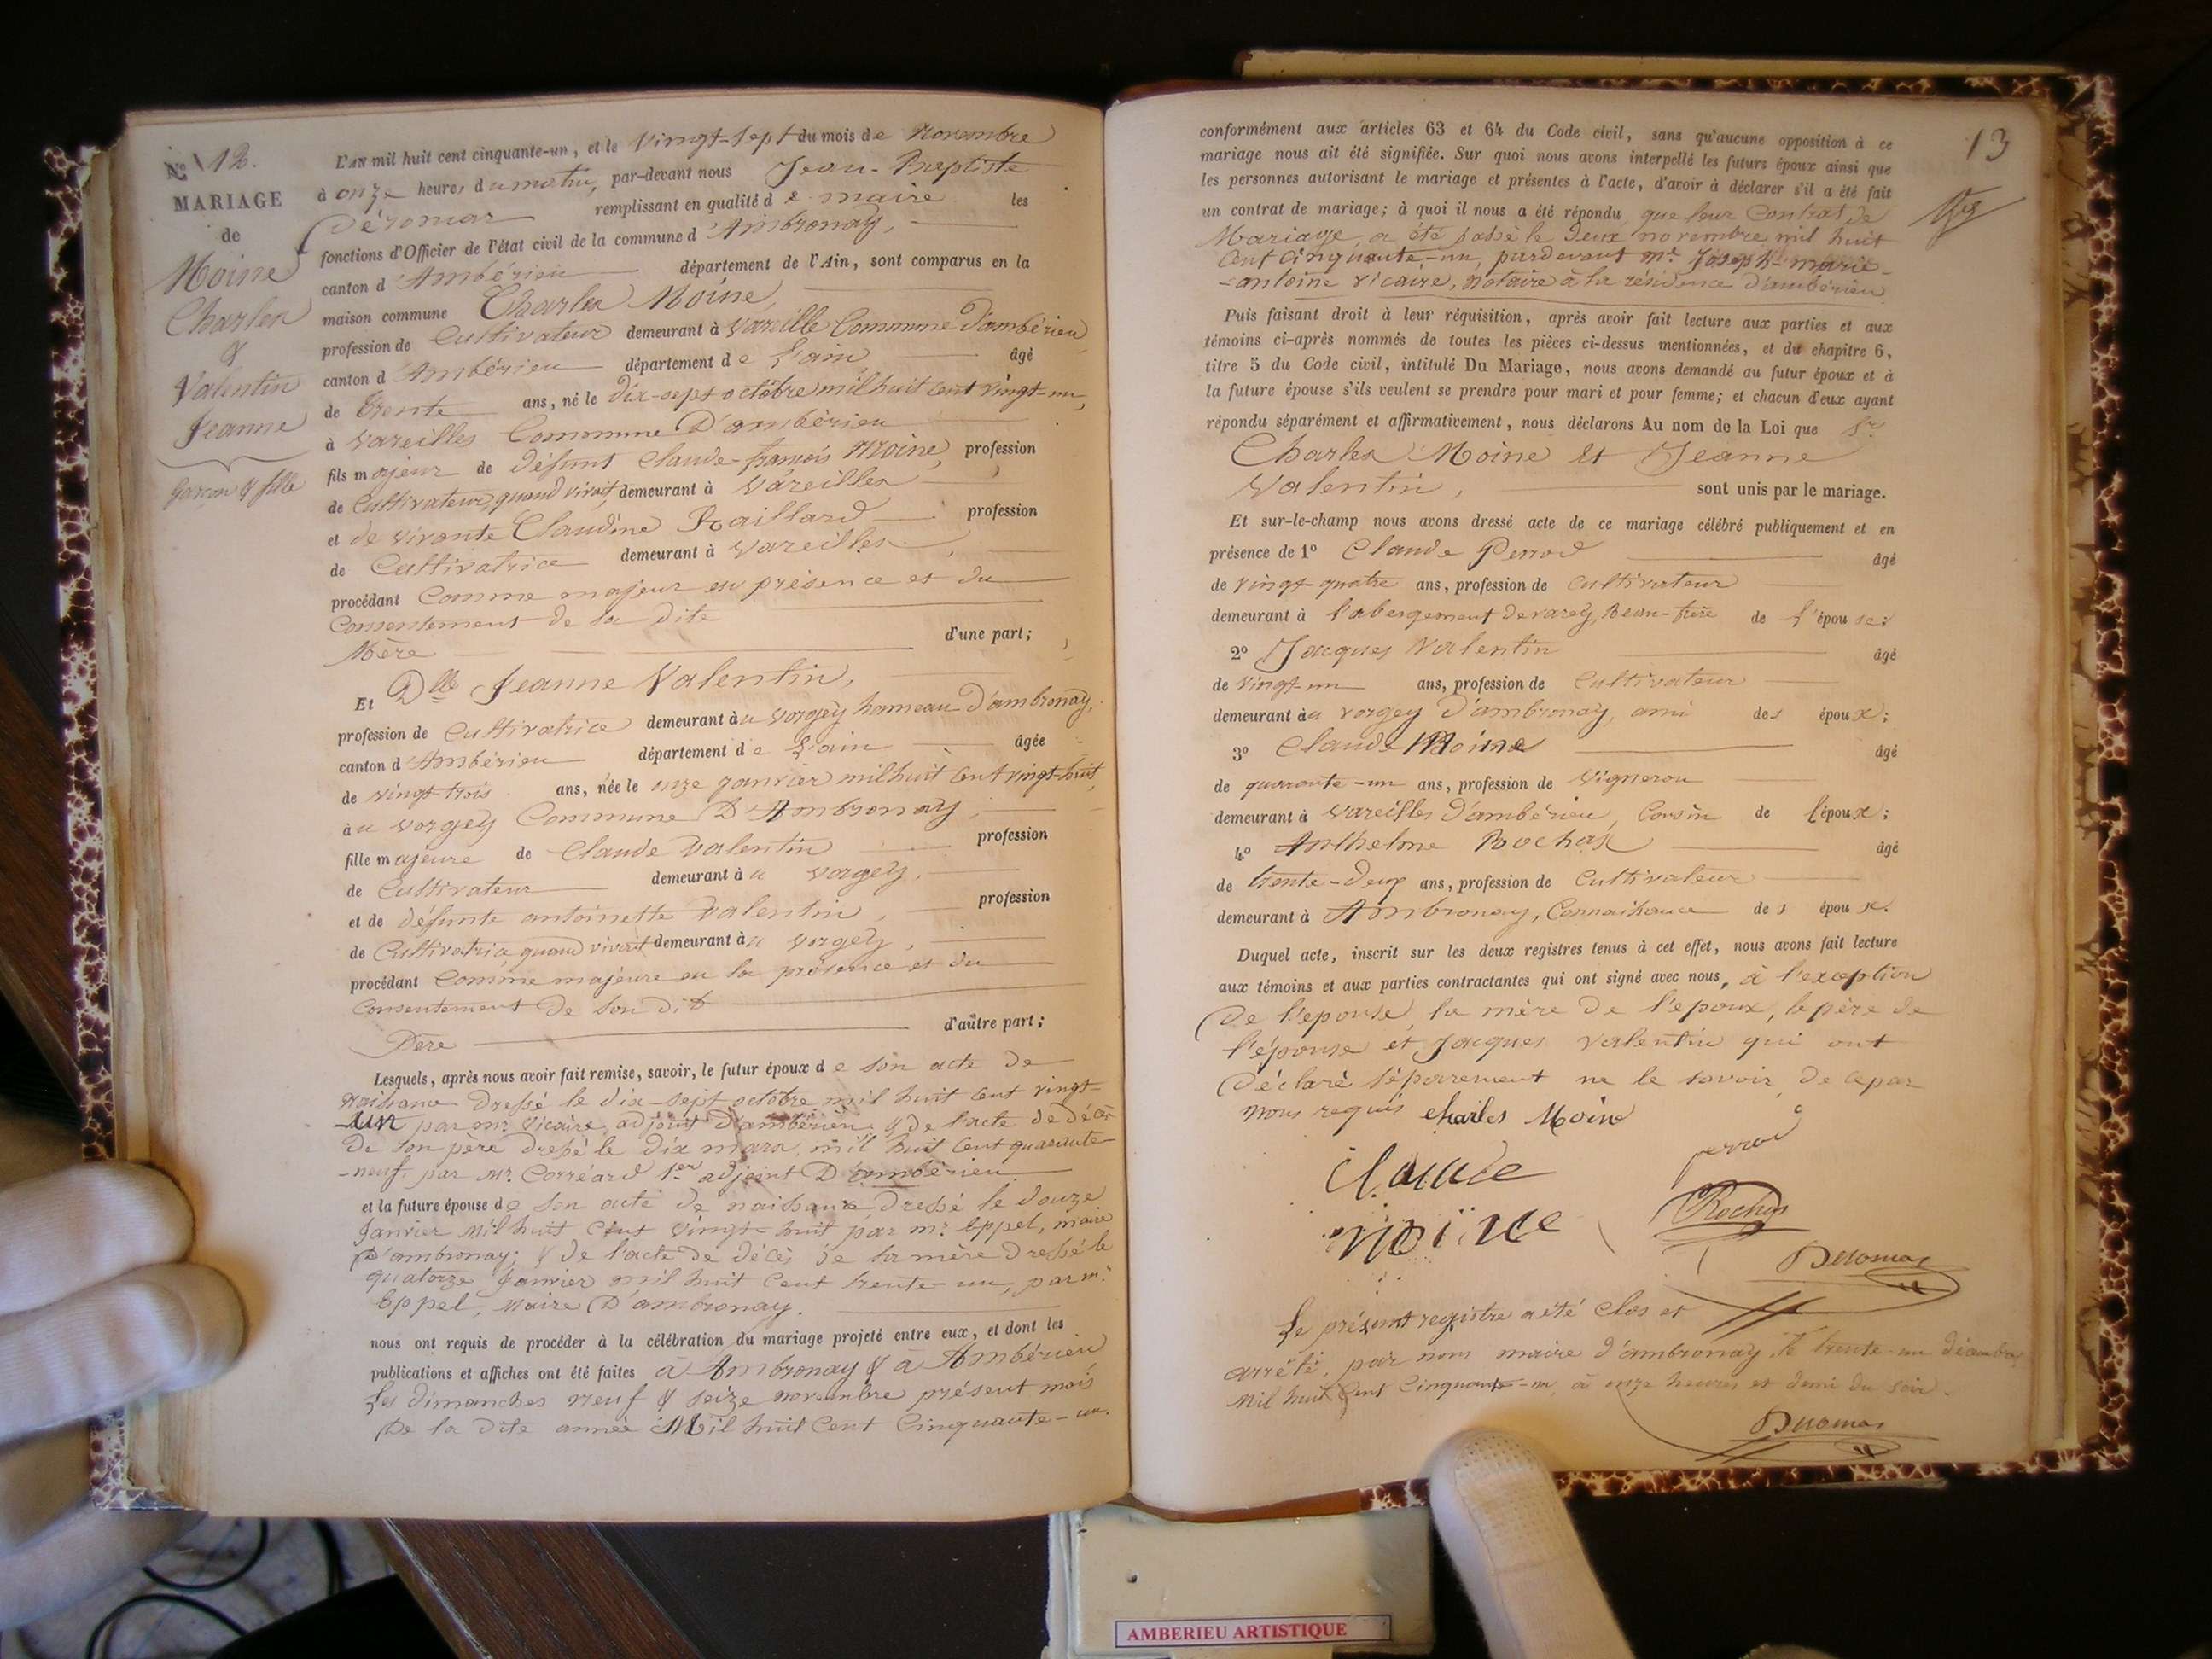 N° 12.
MARIAGE
de
Moine
Charles
&
Valentin
Jeanne
garçon & fille
L'AN mil huit cent cinquante-un, et le vingt-sept du mois de Novembre
à onze heures du matin, par-devant nous Jean-Baptiste
Déromas remplissant en qualité de maire les
fonctions d'Officier de l'état civil de la commune d'Ambronay,
canton d'Ambérieu département de l'Ain, sont comparus en la
maison commune Charles Moine,
profession de Cultivateur demeurant à Vareille Commune d'ambérieu
canton d'Ambérieu département de l'ain âgé
de trente ans, né le dix-sept octobre mil huit cent vingt-un,
à Vareilles Commune D'ambérieu
fils majeur de défunt Claude-françois Moine, profession
de Cultivateur, quand vivait, demeurant à Vareilles
et de vivante Claudine Raillard profession
de Cultivatrice demeurant à Vareilles,
procédant Comme majeur en présence et du
Consentement de sa dite
Mère d'une part;
Et Dlle Jeanne Valentin,
profession de Cultivatrice demeurant au Vorgey hameau d'ambronay,
canton d'Ambérieu département de l'ain âgée
de vingt-trois ans, née le onze janvier mil huit cent vingt-huit,
au Vorgey Commune D'Ambronay,
fille majeure de Claude Valentin profession
de Cultivateur demeurant au Vorgey,
et de défunte antoinette Valentin, profession
de Cultivatrice, quand vivait demeurant au Vorgey,
procédant Comme majeure en la présence et du
Consentement de son dit
Père d'autre part;
Lesquels, après nous avoir fait remise, savoir, le futur époux de son acte de
naissance dressé le dix-sept octobre mil huit cent vingt-
un par mr Vicaire, adjoint d'ambérieu, & de l'acte de décès
De son père dressé le dix mars mil huit cent quarante-
-neuf, par Mr. Corréard 1er adjoint D'ambérieu
et la future épouse de son acte de naissance dressé le douze
Janvier mil huit cent vingt-huit par mr Eppel, maire
D'ambronay; & de l'acte de décès de sa mère dressé le
quatorze Janvier mil huit cent trente-un, par mr
Eppel, maire D'ambronay.
nous ont requis de procéder à la célébration du mariage projeté entre eux, et dont les
publications et affiches ont été faites à Ambronay & à Ambérieu
Les dimanches neuf & seize novembre présent mois
De la dite année Mil huit cent Cinquante-un.
13
conformément aux articles 63 et 64 du Code civil, sans qu'aucune opposition à ce
mariage nous ait été signifiée. Sur quoi nous avons interpellé les futurs époux ainsi que
les personnes autorisant le mariage et présentes à l'acte, d'avoir à déclarer s'il a été fait
un contrat de mariage; à quoi il nous a été répondu que leur Contrat de
Mariage, a été passé le deux novembre mil huit
Cent Cinquante-un, pardevant Mr. Joseph-marie-
-antoine Vicaire, Notaire à la résidence d'ambérieu
Puis faisant droit à leur réquisition, après avoir fait lecture aux parties et aux
témoins ci-après nommés de toutes les pièces ci-dessus mentionnées, et du chapitre 6,
titre 5 du Code civil, intitulé Du Mariage, nous avons demandé au futur époux et à
la future épouse s'ils veulent se prendre pour mari et pour femme; et chacun d'eux ayant
répondu séparément et affirmativement, nous déclarons Au nom de la Loi que Sr
Charles Moine Et Jeanne
Valentin, sont unis par le mariage.
Et sur-le-champ nous avons dressé acte de ce mariage célébré publiquement et en
présence de 1° Claude Perrod âgé
de vingt-quatre ans, profession de Cultivateur
demeurant à l'abergement de varey, Beau-frère de l'épouse;
2° Jacques Valentin âgé
de vingt-un ans, profession de Cultivateur
demeurant au Vorgey D'ambronay, ami des époux;
3° Claude Moine âgé
de quarante-un ans, profession de Vigneron
demeurant à Vareilles d'ambérieu, Cousin de l'époux;
4° Anthelme Rochas âgé
de trente-deux ans, profession de Cultivateur
demeurant à Ambronay, Connaissance des époux.
Duquel acte, inscrit sur les deux registres tenus à cet effet, nous avons fait lecture
aux témoins et aux parties contractantes qui ont signé avec nous, à l'exception
De l'épouse, la mère De l'époux, le père de
l'épouse et Jacques Valentin qui ont
Déclaré séparement ne le savoir, de ce par
nous requis Charles Moine
perrod
Claude
moine
Rochas
Deromas
Le présent registre a été Clos et
arrêté, par nous maire d'ambronay, le trente-un décembre
Mil huit Cent Cinquante-un, à onze heures et demi du soir.
Deromas
AMBERIEU ARTISTIQUE